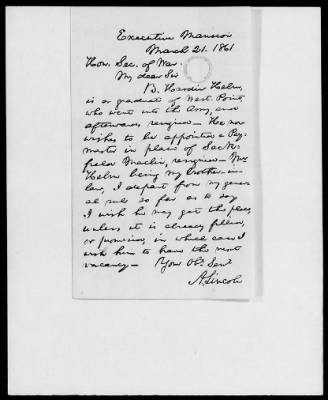 Executive Mansion
March 21. 1861
Hon. Sec. of War.
My dear Sir
B. Hardin Helm,
is a graduate of West-Point,
who went into the Army, and
afterwards resigned— He now
wishes to be appointed a Pay-
master in place of Sack-
field Maclin, resigned— Mr.
Helm being my brother-in-
law, I depart from my gener-
al rule so far as to say
I wish he may get this place,
unless it is already filled,
or promised, in which case I
wish him to have the next
vacancy— Your Obt. Servt.
A. Lincoln